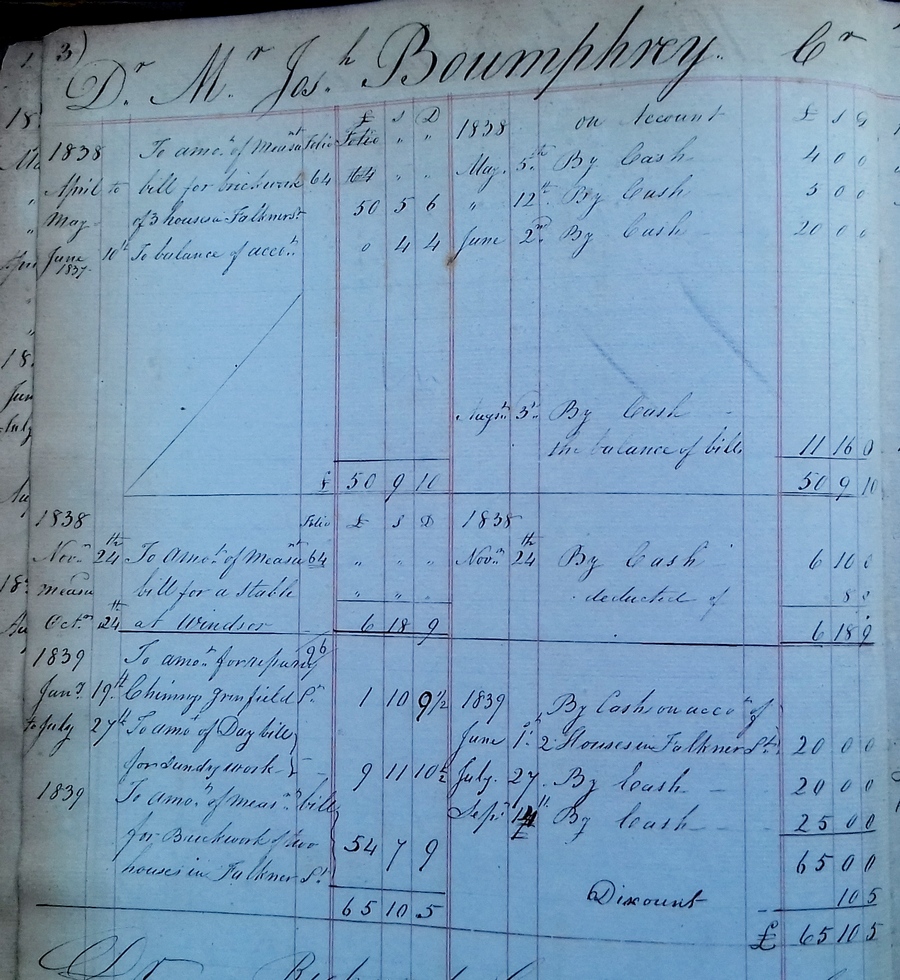 3)
Dr Mr Josh Boumphrey. Cr
£ s D 1838 on Account £ s D
1838 To amot of Measnt Folio Folio " "
May 5th By Cash 4 0 0
April to bill for brickwork 64 164 " "
" 12th By Cash 5 0 0
May of 3 houses in Falkner St 50 5 6
June 2nd By Cash 20 0 0
June 10th To balance of acct. 0 4 4
1837
Augst 3d By Cash
the balance of bill 11 16 0
£ 50 9 10 50 9 10
1838 Folio £ s D 1838
Novr 24th To Amot of Measnt 64 " " " Novr 24th By Cash 6 10 0
measu bill for a stable " " " deducted of 8 9
Octr 24th at Windsor 6 18 9 6 18 9
1839 To amot for reparg 96
Jany 19th Chimnys Grinfield St 1 10 9½ 1839 By Cash on acco of
to July 27th To amot of Day bill
June 1st 2 Houses in Falkner St. 20 0 0
for Sundry work 9 11 10½
July 27 By Cash 20 0 0
1839 To amot of Measnt bill
Sepr 14th By Cash 25 0 0
for Brickwork of two 54 7 9
65 0 0
houses in Falkner St.
Discount 10 5
65 10 5
£ 65 10 5
Dr